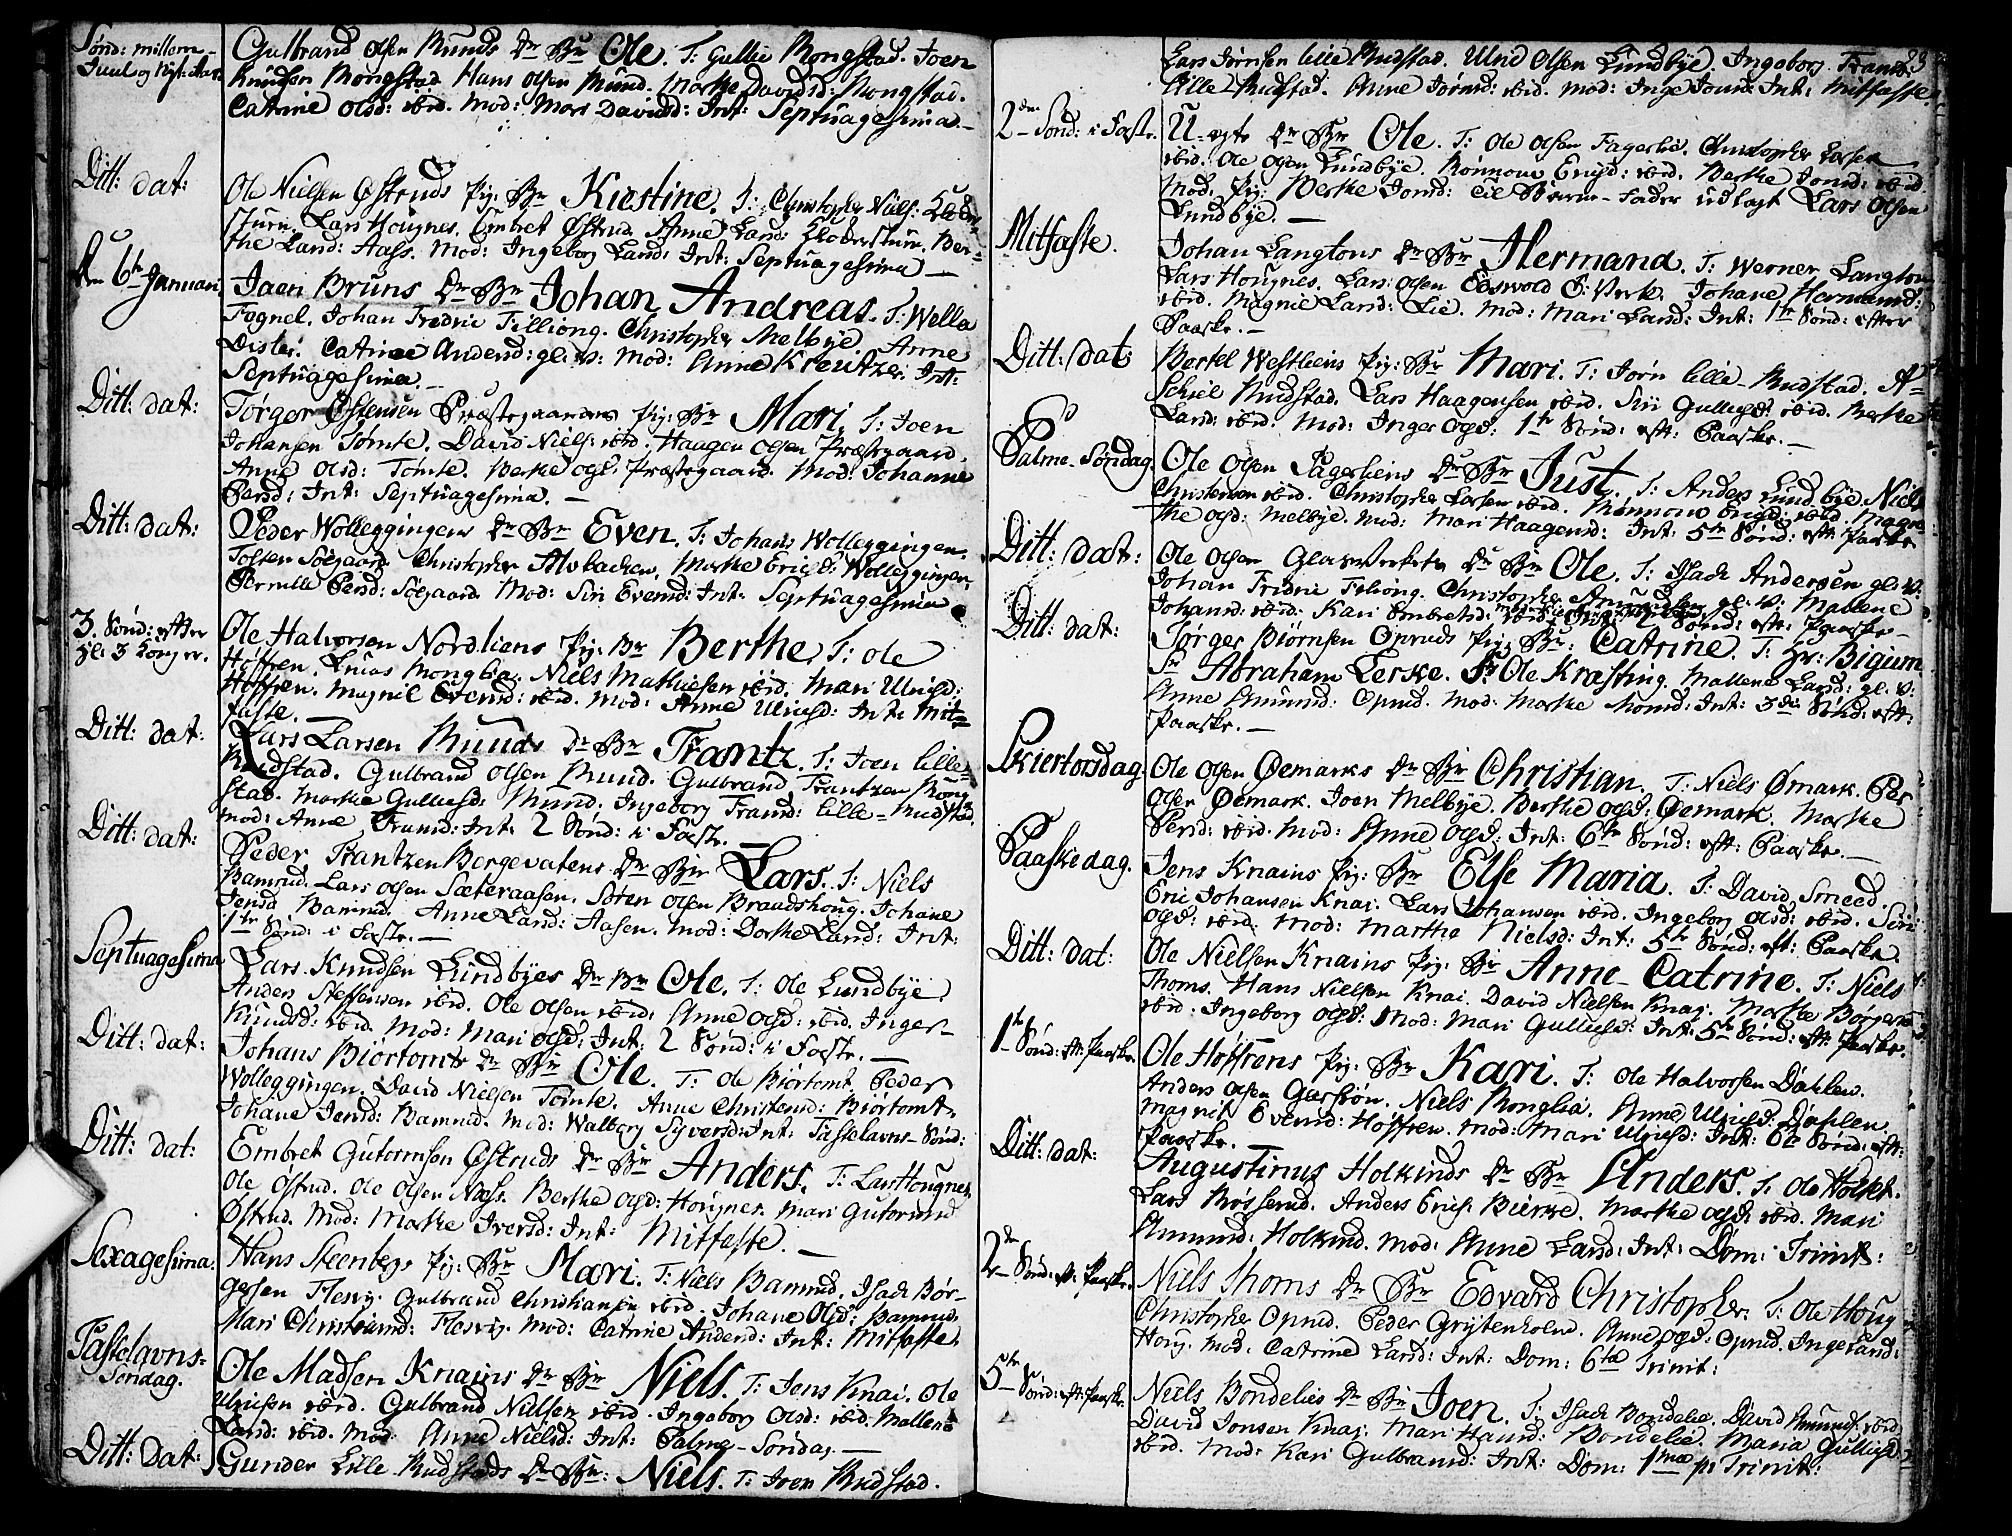 Sønd: millem
Juul og Nyt-Aar
Gulbrand Olsen Runds Dr Br Ole. T: Gullie Rongstad. Joen
Knudsen Rongstad. Hans Olsen Rund. Marthe Davidsd: Rongstad.
Catrine Olsd: ibid. Mod: Mari Davidsd: Int: Septuagesima.
Ditt: dat:
Ole Nielsen Østruds Pig: Br Kirstine. T: Christopher Niels:
stuen. Lars Hougnes. Embret Østrud. Anne Larsd: Klocherstuen. Ber-
the Larsd: Aass. Mod: Ingeborg Larsd: Int: Septuagesima
Den 6te Januari
Joen Bruns Dr Br Johan Andreas. T: Wella
Fognel. Johan Fredric Tilliong. Christopher Melbye. Anne
Disler. Catrine Andersd: gl: v: Mod: Anne Kreutzer. Int:
Septuagesima.
Ditt: dat:
Tørger Østensen Præstegaardens Pig: Br Mari. T: Joen
Johansen Tømte. David Niels: ibid. Haagen Olsen Præstegaard.
Anne Olsd: Tomte. Berthe Ogsd: Præstegaard. Mod: Johanne
Persd: Int: Septuagesima.
Ditt: dat:
Peder Wolleggingens Dr Br Even. T: Johans Wolleggingen.
Tosten Søegaard. Christopher Alvbachen. Marthe Ericsd: Wolleggingen.
Pernille Persd: Søegaard. Mod: Siri Evensd: Int: Septuagesima
3. Sønd: efter
Hl: 3 Konger.
Ole Halvorsen Nordliens Pig: Br Berthe. T: Ole
Høffren. Lucas Monglia. Niels Mathiesen ibid. Mari Ulricsd:
Høffren. Magnil Evensd: ibid. Mod: Anne Ulricsd: Int: Mit-
faste.
Ditt: dat:
Lars Larsen Runds Dr Br Frantz. T: Joen lille-
Rudstad. Gulbrand Olsen Rund. Gulbrand Frantzen Rong-
stad. Marthe Gulliesd: Rund. Ingeborg Fransd: lille-Rudstad.
Mod: Anne Fransd: Int: 2 Sønd: i Fast:
Ditt: dat:
Peder Frantzen Borgevatens Dr Br Lars. T: Niels
Bamrud. Lars Olsen Sæteraasen. Søren Olsen Braadshoug. Johane
Jensd: Bamrud. Anne Larsd: Aasen. Mod: Dorthe Larsd: Int:
1ste Sønd: i Fast:
Septuagesima
Lars Knudsen Lundbyes Dr Br Ole. T: Ole Lundbye.
Anders Steffensen ibid. Ole Olsen ibid. Anne Ogsd: ibid. Inger
Knudsd: ibid. Mod: Mari Ogsd: Int: 2 Sønd: i Fast:
Ditt: dat:
Johans Biørtomts Dr Br Ole. T: Ole Biørtomt. Peder
Wolleggingen. David Nielsen Tomte. Anne Christensd: Biørtomt.
Johane Jensd: Bamrud. Mod: Walborg Syversd: Int: Fastelavns-Sønd:
Ditt: dat:
Embret Gutormsen Østruds Dr Br Anders. T: Lars Hougnes.
Ole Østrud. Ole Olsen Næss. Berthe Ogsd: Hougnes. Mari Gutormsd
Østrud. Mod: Marthe Iversd: Int: Mitfaste.
Sexagesima.
Hans Steenbergs Pig: Br Mari. T: Niels Bamrud. Isach Bør-
gersen Flesvig. Gulbrand Christiansen ibid. Johane Olsd: Bamrud.
Mari Christensd: Flesvig. Mod: Catrine Andersd: Int: Mitfaste.
Fastelavns-
Søndag.
Ole Madsen Knains Dr Br Niels. T: Jens Knai. Ole
Ulricsen ibid. Gulbrand Nielsen ibid. Ingeborg Olsd: ibid. Mallene
Larsd: ibid. Mod: Anne Nielsd: Int: Palme-Søndag.
Ditt: Dat:
Gunder Lille Rudstads Dr Br: Niels. T: Joen Rudstad.
Lars Jørnsen lille Rudstad. Ulrid Olsen Lundbye. Ingeborg Frands:
Lille Rudstad. Anne Jørnsd: ibid. Mod: Inge Jonsd: Int: Mitfaste.
2den Sønd: i Fast:
U-egte Dr Br Ole. T: Ole Olsen Fagerlie. Christopher Larsen
ibid. Ole Olsen Lundbye. Rønnow Ericsd: ibid. Berthe Jonsd: ibid
Mod: Pig: Berthe Jonsd: til Barne-Fader udlagt Lars Olsen
Lundbye.
Mitfaste.
Johan Langtons Dr Br Hermand. T: Werner Langton
Lars Hougnes. Lars Olsen Edswold J: Verk. Johane Hermansd:
ibid. Magnie Larsd: Lie. Mod: Mari Larsd: Int: 1te Sønd: efter
Paaske.
Ditt: dat:
Bertel Westliens Pig: Br Mari. T: Jørn lille-Rudstad. A-
schiel Rudstad. Lars Haagensen ibid. Siri Gulliesd: ibid. Berthe
Larsd: ibid. Mod: Inger Ogsd: 1te Sønd: eft: Paaske.
Palme-Søndag.
Ole Olsen Fagerliens Dr Br Just. T: Anders Lundbye. Niels
Christensen ibid. Christopher Larsen ibid. Rønnow Ericsd: ibid. Magre-
the Ogsd: Melbye. Mod: Mari Haagensd: Int: 5te Sønd: eft: Paaske
Ditt: dat:
Ole Olsen Glassverkets Dr Br Ole. T: Isach Andersen gl: v:
Johan Fridric Teliong. Christopher gl: v: Mallene
Johansd: ibid. Kari Embretsd: ibid: 2 Sønd: eft: Paaske
Ditt: dat:
Tørger Biørnsen Opruds Pig: Br: Catrine. T: Hr: Bigum.
Sr Abraham Lerke. Sr Ole Kræfting. Mallene Larsd: gl: v:
Anne Amunsd: Oprud. Mod: Marthe Int: 3die Sønd: eft:
Paaske.
Skiertorsdag
Ole Olsen Øemarks Dr Br Christian. T: Niels Ømark. Per
Olsen Øemark. Joen Melbye. Berthe Ogsd: Øemark. Marthe
Persd: ibid. Mod: Anne Ogsd: Int: 6te Sønd: eft: Paaske.
Paaskedag.
Jens Knains Pig: Br Else Maria. T: David Smeed.
Eric Johansen Knai. Lars Johansen ibid. Ingeborg Olsd: ibid. Siri
Ogsd: ibid. Mod: Marthe Nielsd: Int: 5te Sønd: eft: Paaske.
Ditt: dat:
Ole Nielsen Knains Pig: Br Anne-Catrine. T: Niels
Thoms. Hans Nielsen Knai. David Nielsen Knai. Marthe Børgers:
ibid. Ingeborg Ogsd: Mod: Mari Gulliesd: Int: 5te Sønd: eft: Paaske.
1te Sønd: eft: Paaske.
Ole Høffrens Pig: Br Kari. T: Ole Halvorsen Dahlen.
Anders Olsen Giersiøn. Niels Ronglia. Anne Ulricsd: Dahlen.
Magnil Evensd: Høffren. Mod: Mari Ulricsd: Int: 6te Sønd: eft:
Paaske.
Ditt: dat:
Augustinus Holkinds Dr Br Anders. T: Ole Holset.
Lars Røsserud. Anders Erics: Bierke. Marthe Ogsd: ibid. Mari
Amunsd: Holkind. Mod: Anne Larsd: Int: Dom: Trinit:
2den Sønd: eft: Paaske.
Niels Thoms Dr Br Edvard Christopher. T: Ole Houg
Christopher Oprud. Peder Grytenholm. Anne Ogsd: Oprud. Inge Larsd:
Houg. Mod: Catrine Larsd: Int: Dom: 6ta Trinit:
5te Sønd: eft: Paaske.
Niels Bondelies Dr Br Joen. T: Isach Bondelie. David Amunds: ibid.
David Jonsen Knai. Mari Hansd: Bondelie. Maria Gulliesd:
ibid. Mod: Kari Gulbransd: Int: Dom: 1ma p: Trinit: